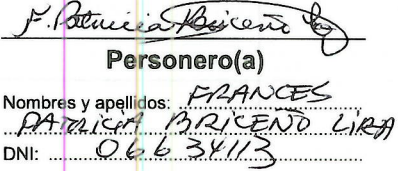 F. Patricia Briceño L
Personero(a)
Nombres y apellidos: FRANCES
PATRICIA BRICEÑO LIRA
DNI: 06634113